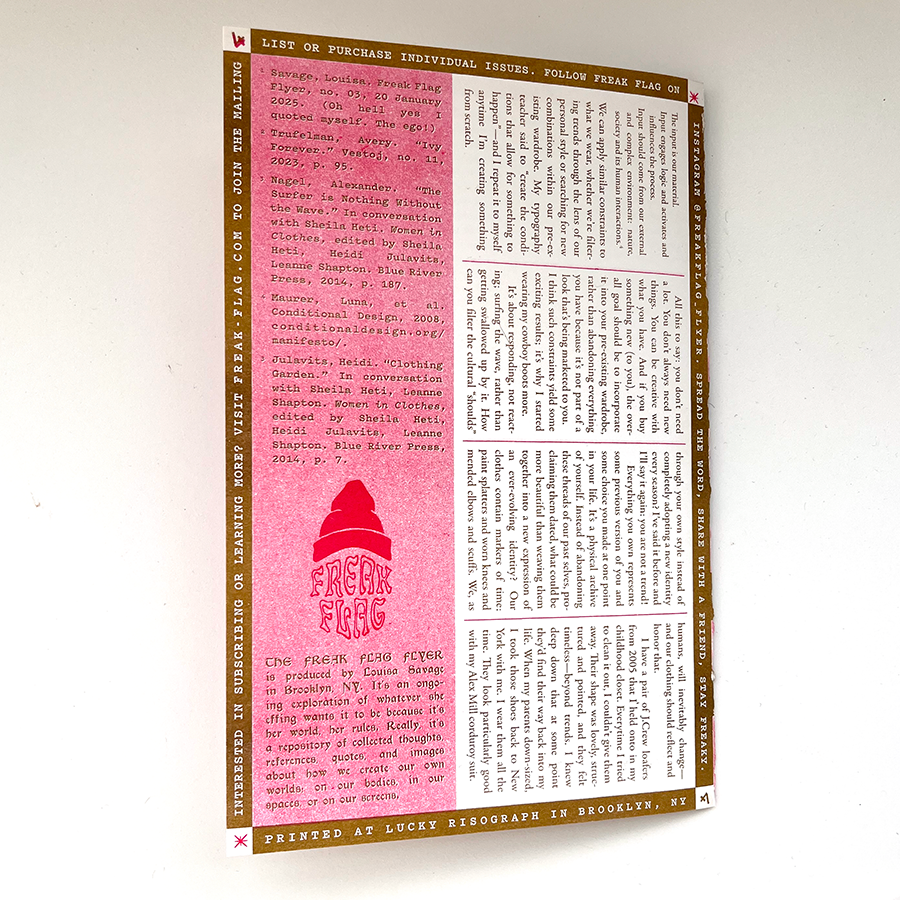 INTERESTED IN SUBSCRIBING OR LEARNING MORE? VISIT FREAK-FLAG.COM TO JOIN THE MAILING
LIST OR PURCHASE INDIVIDUAL ISSUES. FOLLOW FREAK FLAG ON
INSTAGRAM @FREAKFLAG_FLYER. SPREAD THE WORD, SHARE WITH A FRIEND, STAY FREAKY.
PRINTED AT LUCKY RISOGRAPH IN BROOKLYN, NY
1 Savage, Louisa, Freak Flag
Flyer, no. 03, 20 January
2025. (Oh hell yes I
quoted myself. The ego!)
2 Trufelman, Avery. “Ivy
Forever.” Vestoj, no. 11,
2023, p. 95.
3 Nagel, Alexander. “The
Surfer is Nothing Without
the Wave.” In conversation
with Sheila Heti. Women in
Clothes, edited by Sheila
Heti, Heidi Julavits,
Leanne Shapton. Blue River
Press, 2014, p. 187.
4 Maurer, Luna, et al,
Conditional Design, 2008,
conditionaldesign.org/
manifesto/.
5 Julavits, Heidi. “Clothing
Garden.” In conversation
with Sheila Heti, Leanne
Shapton. Women in Clothes,
edited by Sheila Heti,
Heidi Julavits, Leanne
Shapton. Blue River Press,
2014, p. 7.
FREAK
FLAG
THE FREAK FLAG FLYER
is produced by Louisa Savage
in Brooklyn, NY. It's an ongo-
ing exploration of whatever she
effing wants it to be because it's
her world, her rules. Really, it's
a repository of collected thoughts,
references, quotes, and images
about how we create our own
worlds: on our bodies, in our
spaces, or on our screens.
The input is our material.
Input engages logic and activates and
influences the process.
Input should come from our external
and complex environment: nature,
society and its human interactions.4
We can apply similar constraints to
what we wear, whether we're filter-
ing trends through the lens of our
personal style or searching for new
combinations within our pre-ex-
isting wardrobe. My typography
teacher said to “create the condi-
tions that allow for something to
happen”—and I repeat it to myself
anytime I'm creating something
from scratch.
All this to say: you don't need
a lot. You don't always need new
things. You can be creative with
what you have. And if you buy
something new (to you), the over-
all goal should be to incorporate
it into your pre-existing wardrobe,
rather than abandoning everything
you have because it's not part of a
look that's being marketed to you.
I think such constraints yield some
exciting results; it's why I started
wearing my cowboy boots more.
It's about responding, not react-
ing; surfing the wave, rather than
getting swallowed up by it. How
can you filter the cultural “shoulds”
through your own style instead of
completely adopting a new identity
every season? I've said it before and
I'll say it again: you are not a trend!
Everything you own represents
some previous version of you and
some choice you made at one point
in your life. It's a physical archive
of yourself. Instead of abandoning
these threads of our past selves, pro-
claiming them dated, what could be
more beautiful than weaving them
together into a new expression of
an ever-evolving identity? Our
clothes contain markers of time:
paint splatters and worn knees and
mended elbows and scuffs. We, as
humans, will inevitably change—
and our clothing should reflect and
honor that.
I have a pair of J.Crew loafers
from 2005 that I held onto in my
childhood closet. Everytime I tried
to clean it out, I couldn't give them
away. Their shape was lovely, struc-
tured and pointed, and they felt
timeless—beyond trends. I knew
deep down that at some point
they'd find their way back into my
life. When my parents down-sized,
I took those shoes back to New
York with me. I wear them all the
time. They look particularly good
with my Alex Mill corduroy suit.